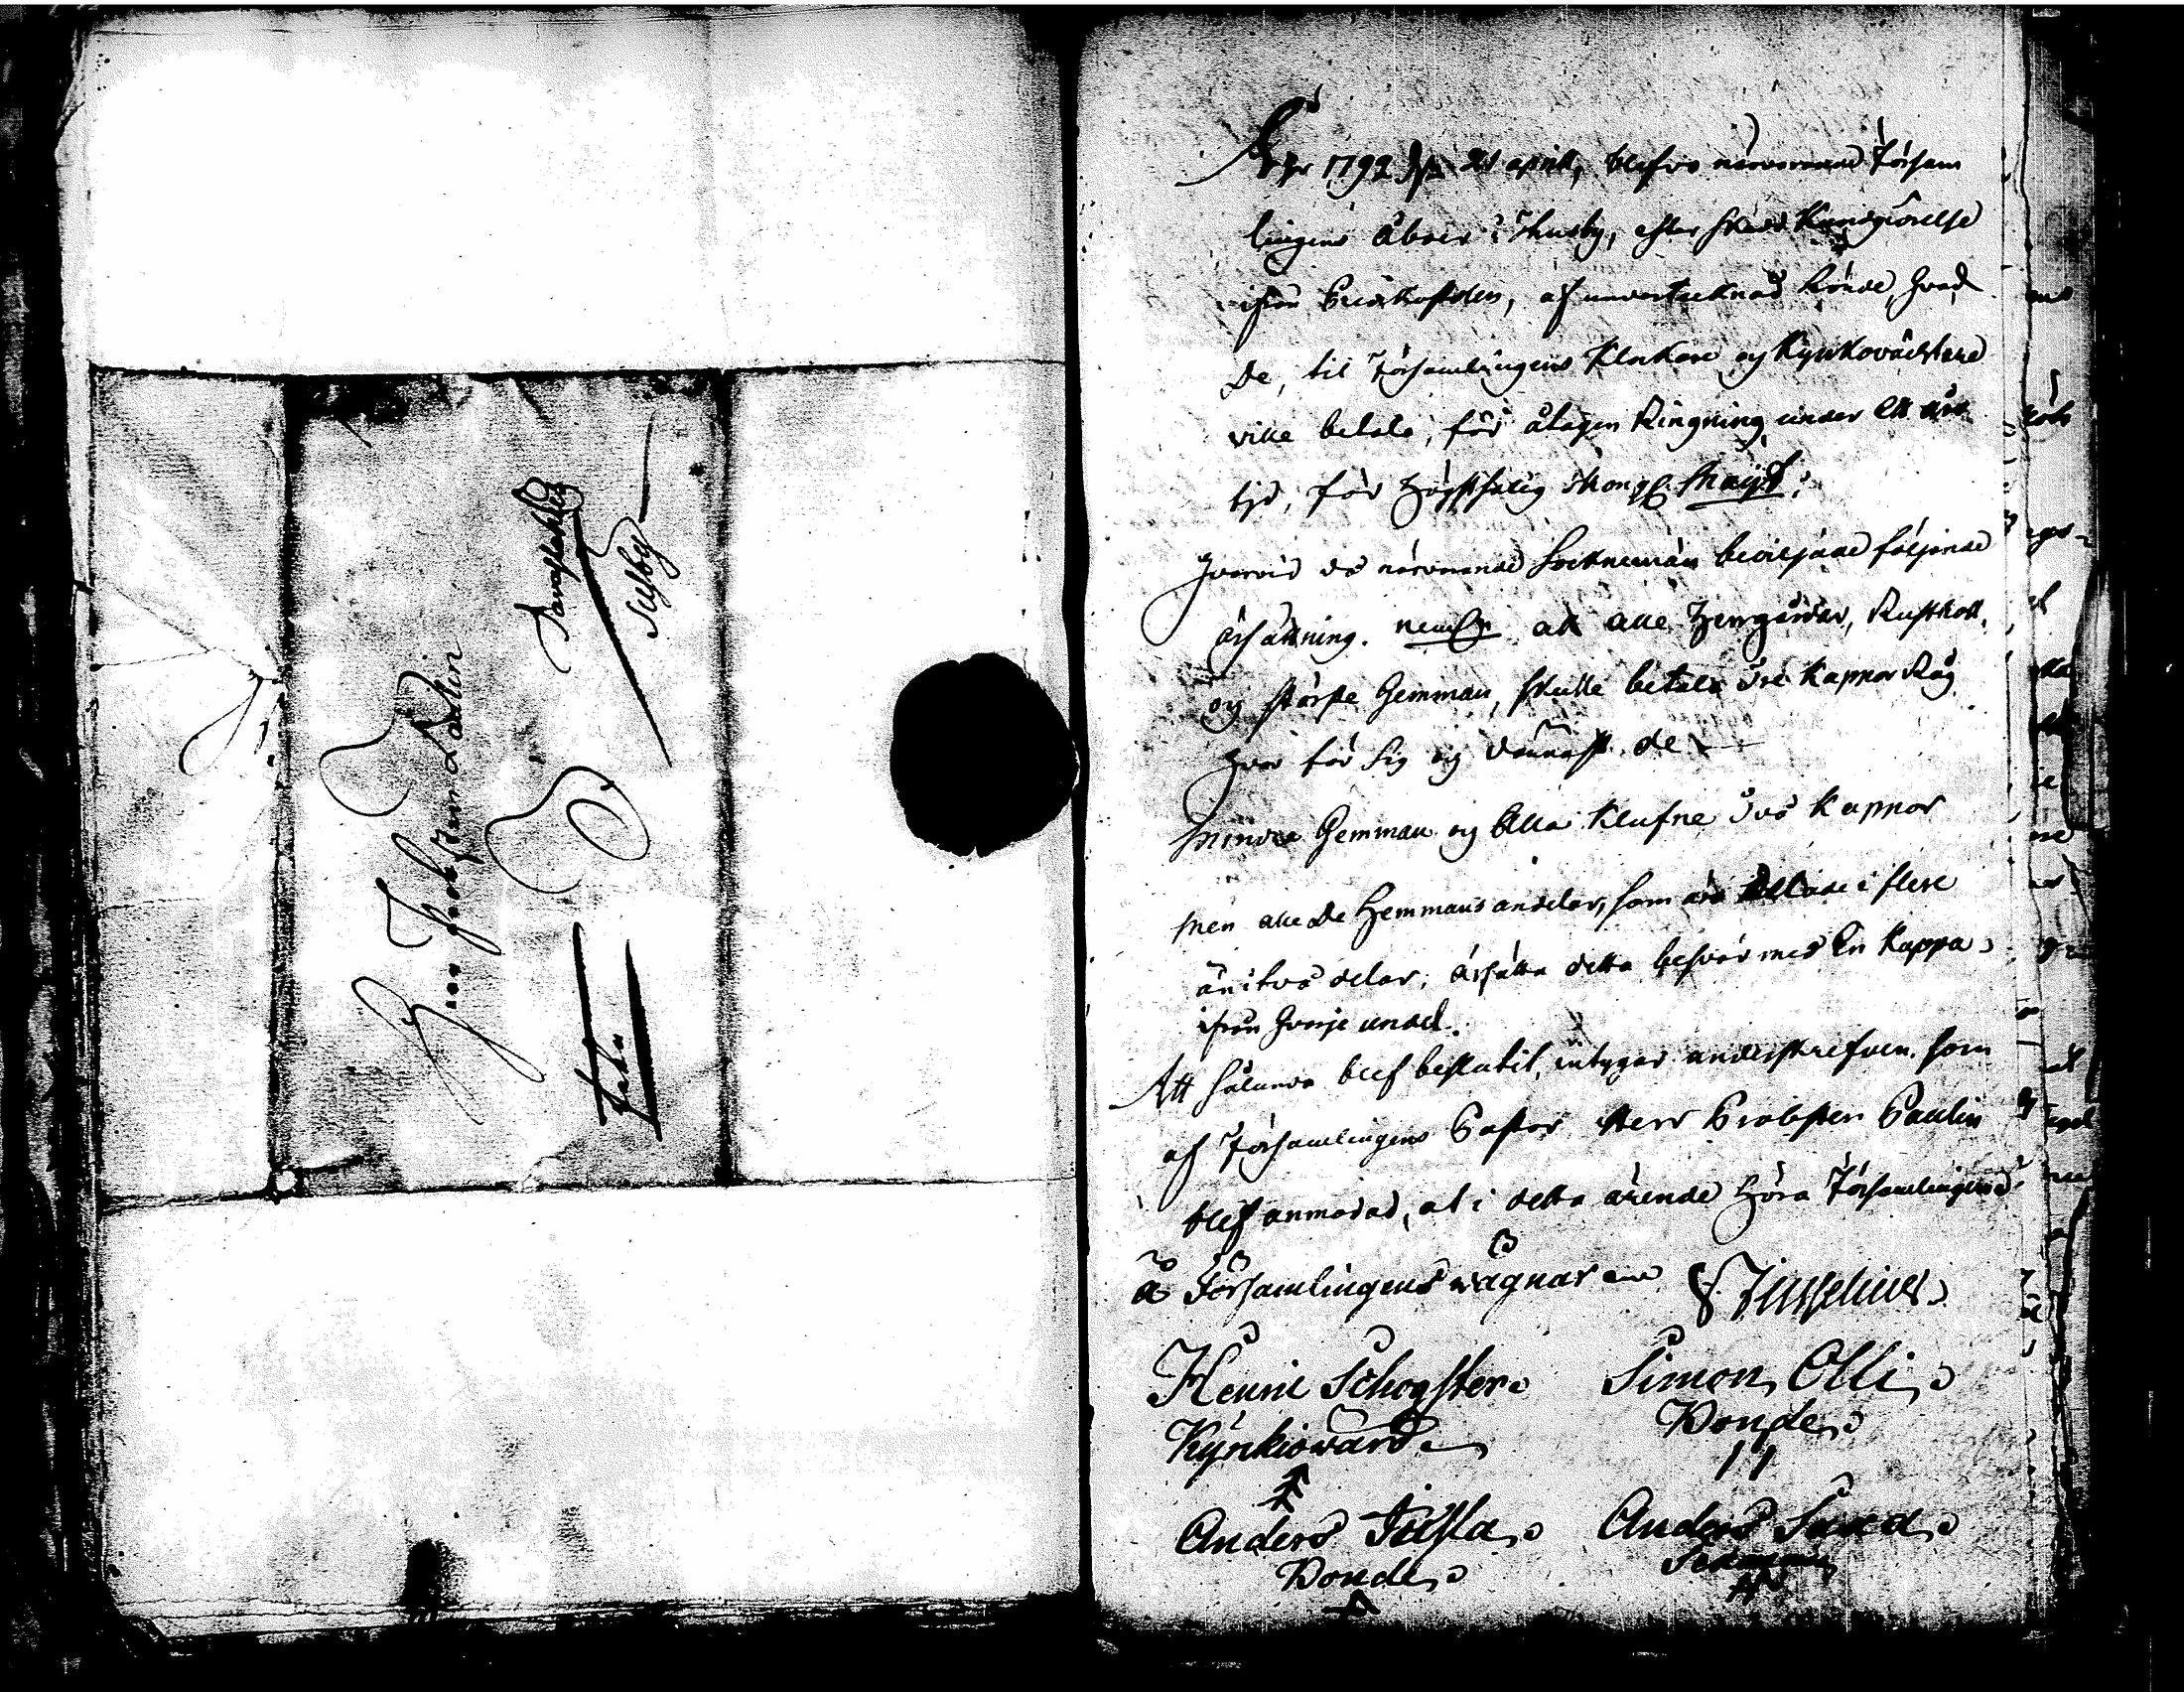 Herr Probsten Paulin
Tavastehus
Sesby
Fahu
År 1792 d: 21 april, blefvo närvarande Försam
lingens Åboer i Husby, efter skedd Kungiörelse
ifrån Predikostolen, af undertecknad hörde, hvad
De, til Församlingens Klockare og Kyrkovächtare
ville betala, för åtagen Ringning under ett års
tid, för Högstsalig Kongl. Maijt:
Hvarvid de närvarande Sockneman beviljade följande
ersättning. neml: att alla Herrgårdar, Rusthåll,
og större Hemman, skulle betala Tre Kappor Råg
hvar för sig og dernäst de
mindre Hemman og Alla Klufne Två Kappor
men alla De Hemmans andelar, som äro delade i flere
än i två delar, ersätta detta besvär med En Kappa
ifrån hvarje andel.
Att sålunda blef beslutit, intygar underskrefven som
af Församlingens Pastor Herr Probsten Paulin
blef anmodad, at i detta ärende Höra Församlingen
å Församlingens vägnar
Henric Schogster Simon Olli
Kyrkiovärd Bonde
Anders Tussa Anders
Bonde